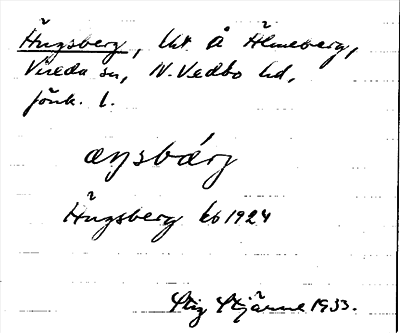 Ängsberg, lht. Å Älmeberg,
Vireda sn, N. Vedbo hd,
Jönk. l.
æŋsbárj
Ängsberg kb 1924
Stig Stjärne 1933.